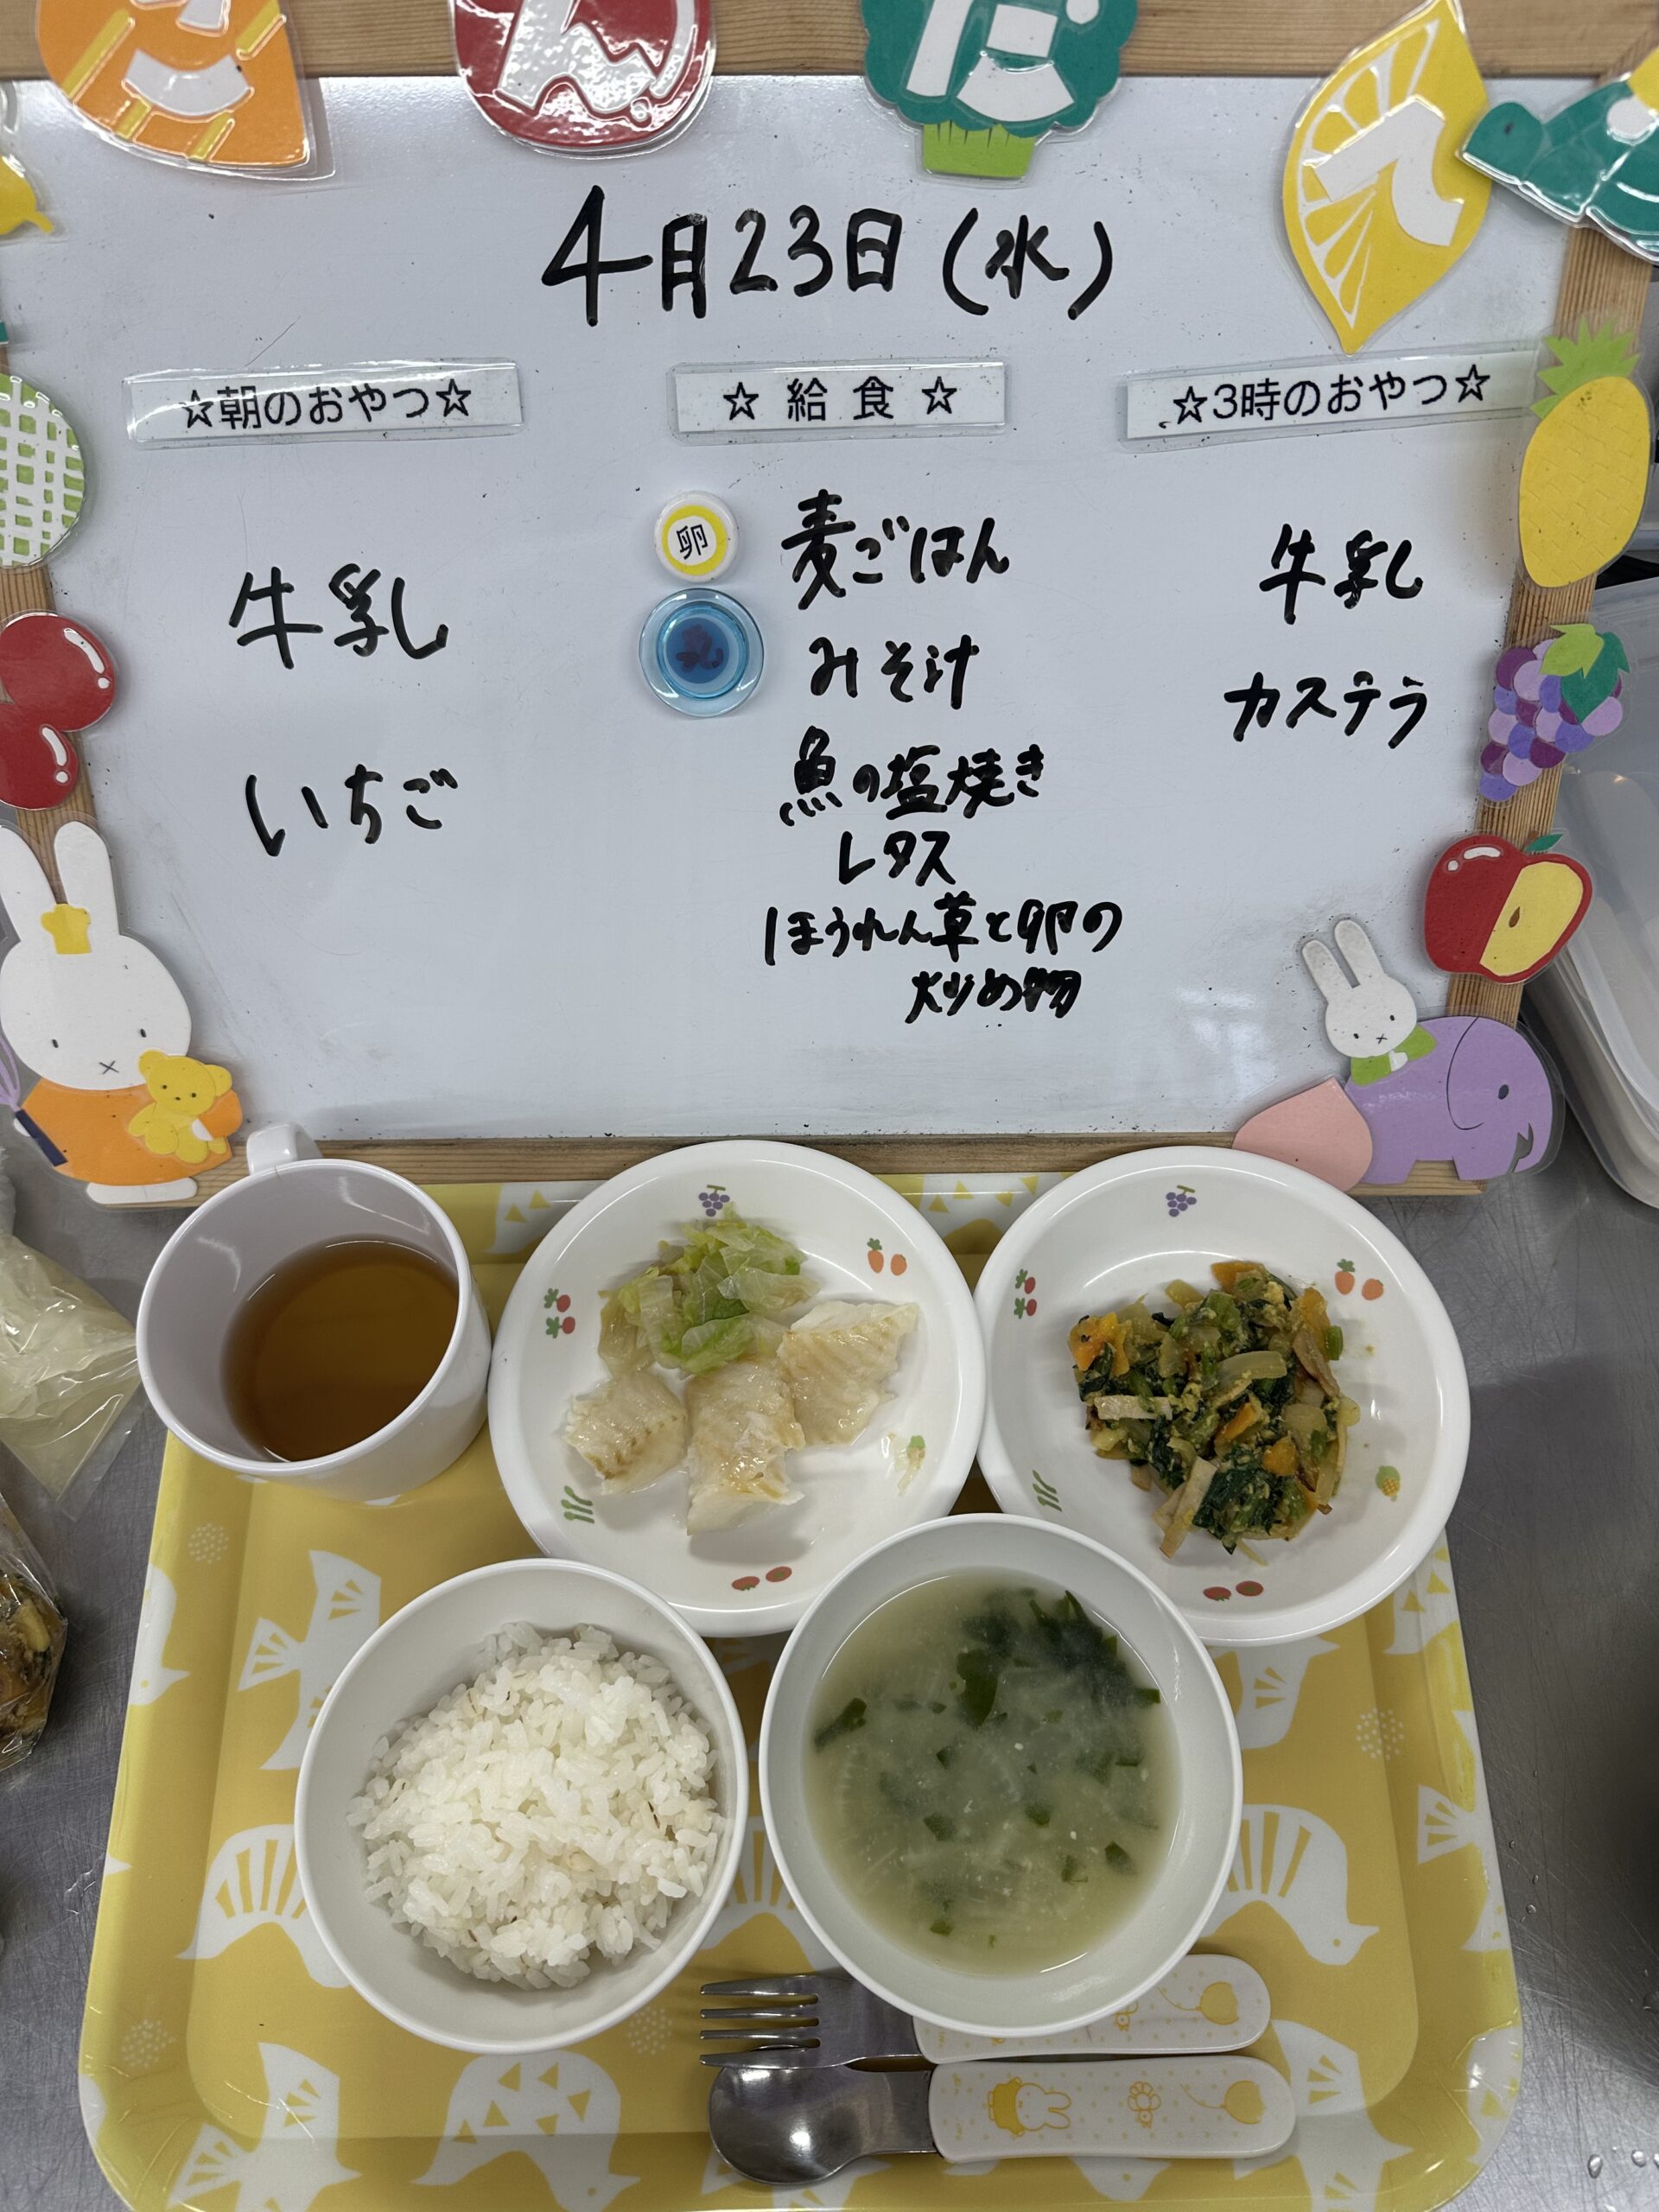 こんだて
4月23日(水)
☆朝のおやつ☆
牛乳
いちご
☆ 給 食 ☆
卵
乳
麦ごはん
みそ汁
魚の塩焼き
レタス
ほうれん草と卵の
炒め物
☆3時のおやつ☆
牛乳
カステラ